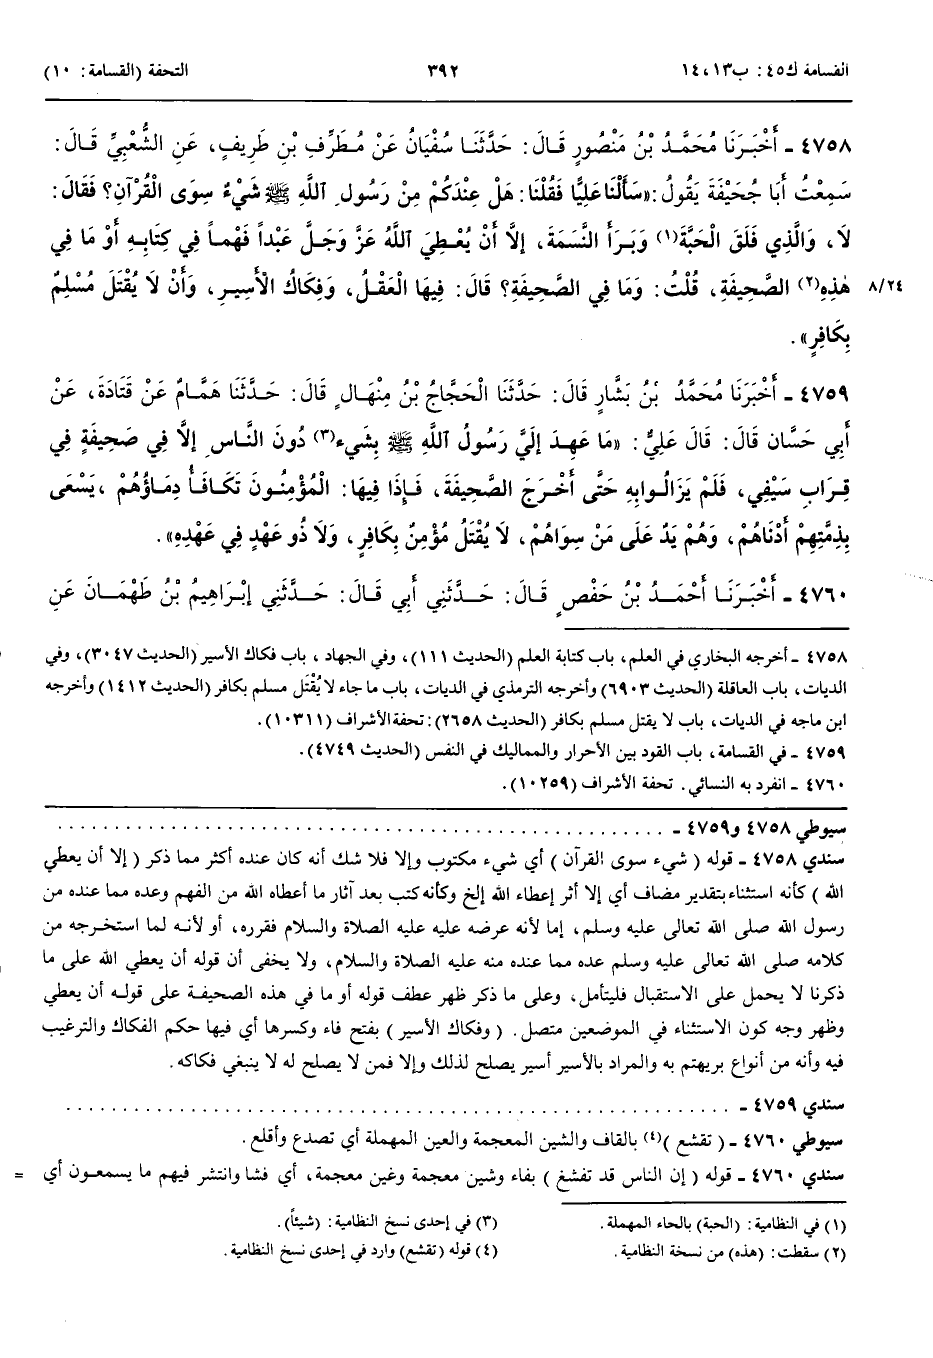 القسامة ك٤٥: ب١٣، ١٤
٣٩٢
التحفة (القسامة: ١٠)
٤٧٥٨ ـ أَخْبَرَنَا مُحَمَّدُ بْنُ مَنْصُورٍ قَالَ: حَدَّثَنَا سُفْيَانُ عَنْ مُطَرِّفِ بْنِ طَرِيفٍ، عَنِ الشَّعْبِيِّ قَالَ:
سَمِعْتُ أَبَا جُحَيْفَةَ يَقُولُ: «سَأَلْنَا عَلِيًّا فَقُلْنَا: هَلْ عِنْدَكُمْ مِنْ رَسُولِ اللَّهِ ﷺ شَيْءٌ سِوَى الْقُرْآنِ؟ فَقَالَ:
لَا، وَالَّذِي فَلَقَ الْحَبَّةَ(١) وَبَرَأَ النَّسَمَةَ، إلَّا أَنْ يُعْطِيَ اللَّهُ عَزَّ وَجَلَّ عَبْداً فَهْماً فِي كِتَابِهِ أَوْ مَا فِي
٨/٢٤ هٰذِهِ(٢) الصَّحِيفَةِ، قُلْتُ: وَمَا فِي الصَّحِيفَةِ؟ قَالَ: فِيهَا الْعَقْلُ، وَفِكَاكُ الْأَسِيرِ، وَأَنْ لَا يُقْتَلَ مُسْلِمٌ
بِكَافِرٍ».
٤٧٥٩ ـ أَخْبَرَنَا مُحَمَّدُ بْنُ بَشَّارٍ قَالَ: حَدَّثَنَا الْحَجَّاجُ بْنُ مِنْهَالٍ قَالَ: حَدَّثَنَا هَمَّامٌ عَنْ قَتَادَةَ، عَنْ
أَبِي حَسَّان قَالَ: قَالَ عَلِيٌّ: «مَا عَهِدَ إلَيَّ رَسُولُ اللَّهِ ﷺ بِشَيْءٍ(٣) دُونَ النَّاسِ إلَّا فِي صَحِيفَةٍ فِي
قِرَابِ سَيْفِي، فَلَمْ يَزَالُوا بِهِ حَتَّى أَخْرَجَ الصَّحِيفَةَ، فَإِذَا فِيهَا: الْمُؤْمِنُونَ تَكَافَأُ دِمَاؤُهُمْ، يَسْعَى
بِذِمَّتِهِمْ أَدْنَاهُمْ، وَهُمْ يَدٌ عَلَى مَنْ سِوَاهُمْ، لَا يُقْتَلُ مُؤْمِنٌ بِكَافِرٍ، وَلَا ذُو عَهْدٍ فِي عَهْدِهِ».
٤٧٦٠ ـ أَخْبَرَنَا أَحْمَدُ بْنُ حَفْصٍ قَالَ: حَدَّثَنِي أَبِي قَالَ: حَدَّثَنِي إبْرَاهِيمُ بْنُ طَهْمَانَ عَنِ
٤٧٥٨ ـ أخرجه البخاري في العلم، باب كتابة العلم (الحديث ١١١)، وفي الجهاد، باب فكاك الأسير (الحديث ٣٠٤٧)، وفي
الديات، باب العاقلة (الحديث ٦٩٠٣) وأخرجه الترمذي في الديات، باب ما جاء لا يُقْتَل مسلم بكافر (الحديث ١٤١٢) وأخرجه
ابن ماجه في الديات، باب لا يقتل مسلم بكافر (الحديث ٢٦٥٨): تحفة الأشراف (١٠٣١١).
٤٧٥٩ ـ في القسامة، باب القود بين الأحرار والمماليك في النفس (الحديث ٤٧٤٩).
٤٧٦٠ ـ انفرد به النسائي. تحفة الأشراف (١٠٢٥٩).
سيوطي ٤٧٥٨ و٤٧٥٩ ـ ..........
سندي ٤٧٥٨ ـ قوله ( شيء سوى القرآن ) أي شيء مكتوب وإلا فلا شك أنه كان عنده أكثر مما ذكر ( إلا أن يعطي
الله ) كأنه استثناء بتقدير مضاف أي إلا أثر إعطاء الله إلخ وكأنه كتب بعد آثار ما أعطاه الله من الفهم وعده مما عنده من
رسول الله صلى الله تعالى عليه وسلم، إما لأنه عرضه عليه عليه الصلاة والسلام فقرره، أو لأنه لما استخرجه من
كلامه صلى الله تعالى عليه وسلم عده مما عنده منه عليه الصلاة والسلام، ولا يخفى أن قوله أن يعطي الله على ما
ذكرنا لا يحمل على الاستقبال فليتأمل، وعلى ما ذكر ظهر عطف قوله أو ما في هذه الصحيفة على قوله أن يعطي
وظهر وجه كون الاستثناء في الموضعين متصل. ( وفكاك الأسير ) بفتح فاء وكسرها أي فيها حكم الفكاك والترغيب
فيه وأنه من أنواع بريهتم به والمراد بالأسير أسير يصلح لذلك وإلا فمن لا يصلح له لا ينبغي فكاكه.
سندي ٤٧٥٩ ـ ..........
سيوطي ٤٧٦٠ ـ ( تقشع )(٤) بالقاف والشين المعجمة والعين المهملة أي تصدع وأقلع.
سندي ٤٧٦٠ ـ قوله ( إن الناس قد تفشغ ) بفاء وشين معجمة وغين معجمة، أي فشا وانتشر فيهم ما يسمعون أي =
(١) في النظامية: (الحبة) بالحاء المهملة.
(٢) سقطت: (هذه) من نسخة النظامية.
(٣) في إحدى نسخ النظامية: (شيئاً).
(٤) قوله (تقشع) وارد في إحدى نسخ النظامية.